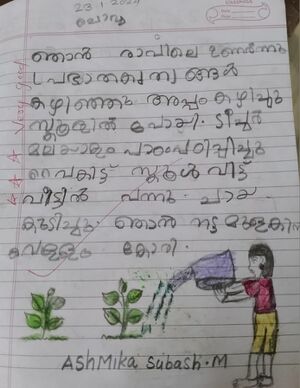 23 1 202
ചൊവ്വ
ഞാൻ രാവിലെ ഉണർന്നു
പ്രഭാതകൃത്യങ്ങൾ
കഴിഞ്ഞു. അപ്പം കഴിച്ചു
സ്കൂളിൽ പോയി. ടീച്ചർ
മലയാളം പാഠം പഠിപ്പിച്ചു
വൈകിട്ട് സ്കൂൾ വിട്ട്
വീട്ടിൽ വന്നു. ചായ
കുടിച്ചു ഞാൻ നട്ട മുളകിന്
വെള്ളം കോരി.
Very good
AShMika Subash.M